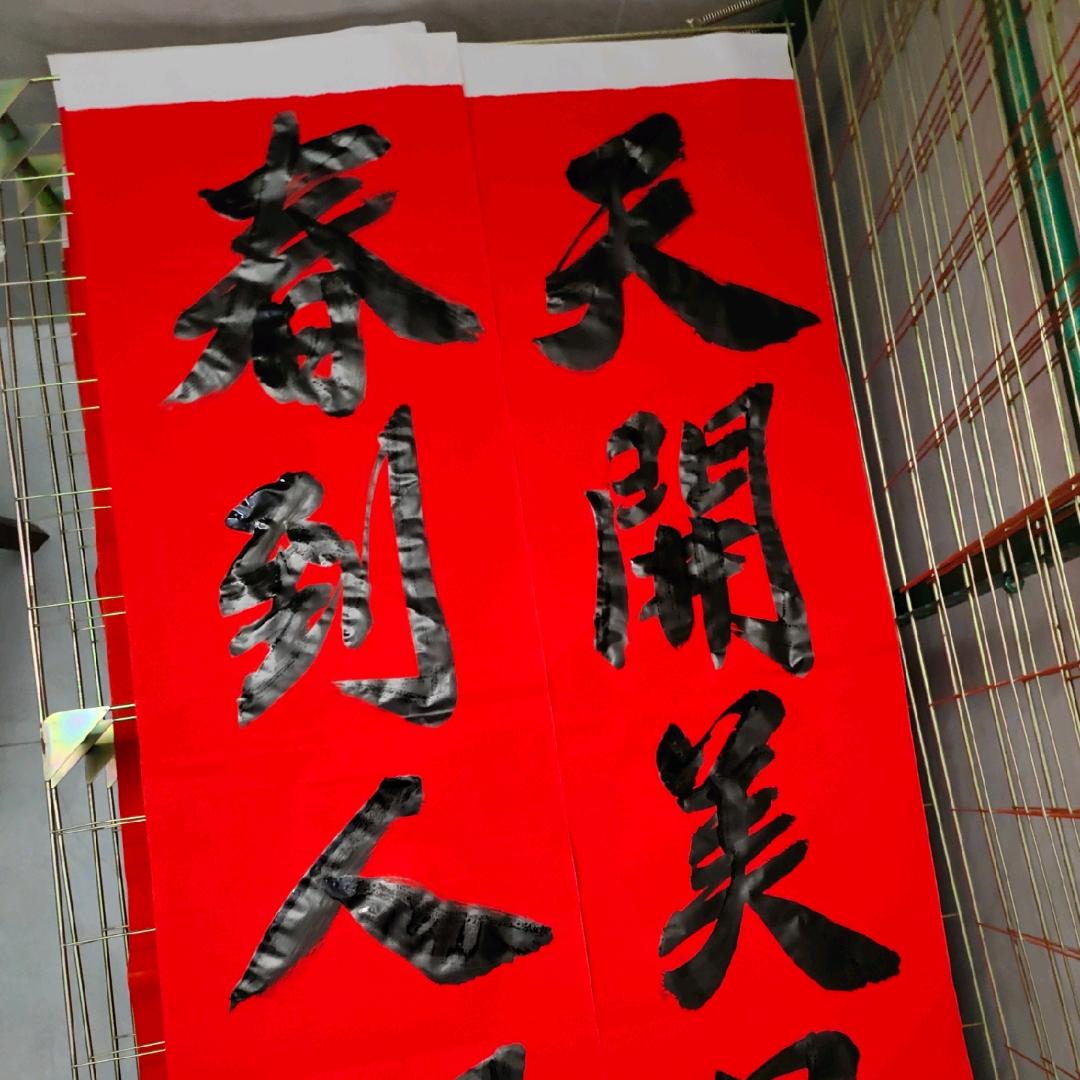 天開美
春到人